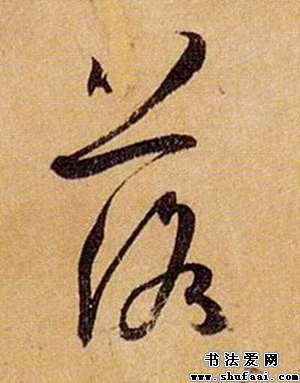 落
书法爱网
www.shufaai.com